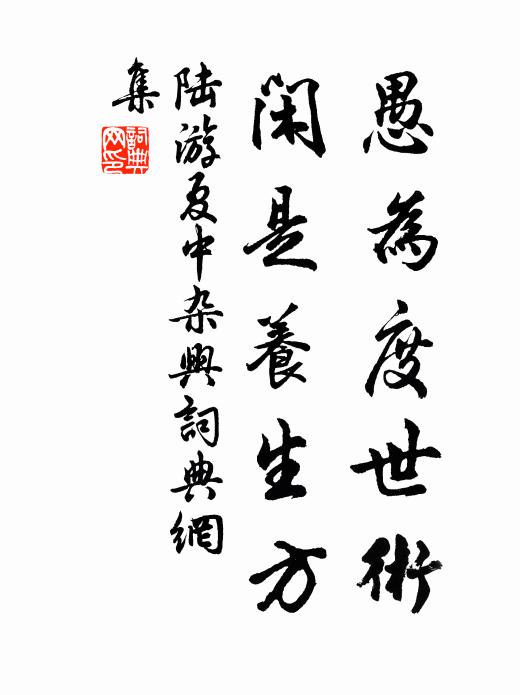 愚為度世術
閑是養生方
陆游夏中杂興詞典網
集
詞典
网印